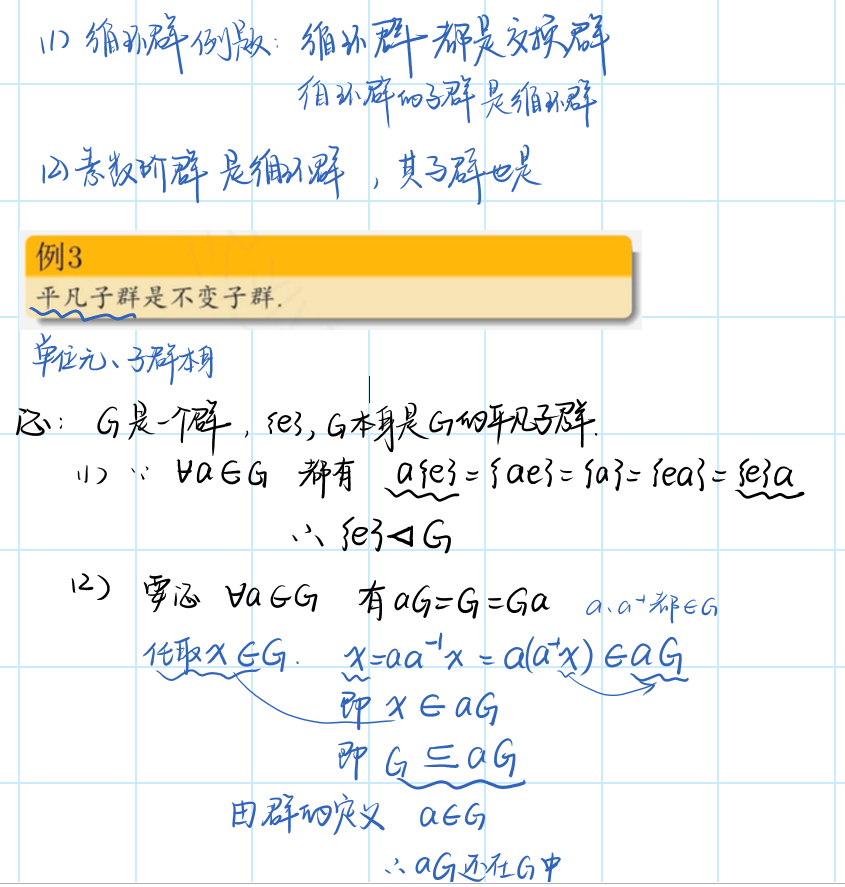 (1) 循环群例题: 循环群都是交换群
循环群的子群是循环群
(2) 素数阶群是循环群，其子群也是
例3
平凡子群是不变子群.
单位元、子群本身
证: G是一个群, {e}, G本身是G的平凡子群.
(1) ∵ ∀a∈G 都有 a{e}={ae}={a}={ea}={e}a
∴ {e}⊲G
(2) 要证 ∀a∈G 有aG=G=Ga a、a⁻¹都∈G
任取x∈G. x=aa⁻¹x=a(a⁻¹x)∈aG
即 x∈aG
即 G⊆aG
由群的定义 a∈G
∴aG还在G中